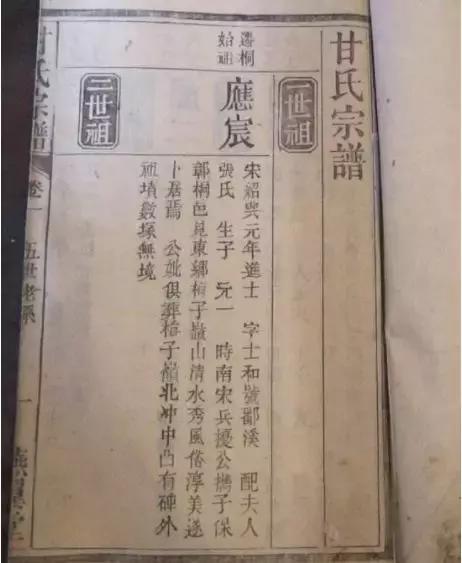 甘氏宗譜
一世祖
遷桐
始祖
應宸
宋紹興元年進士 字士和號鄱溪 配夫人
張氏 生子 元一 時南宋兵擾公攜子保
鄣桐邑見東鄉梓子嶺山清水秀風俗淳美遂
卜居焉 公妣俱葬梓子嶺北冲中凸有碑外
祖墳數塚無境
二世祖
甘氏宗譜
卷一
五世老系
一